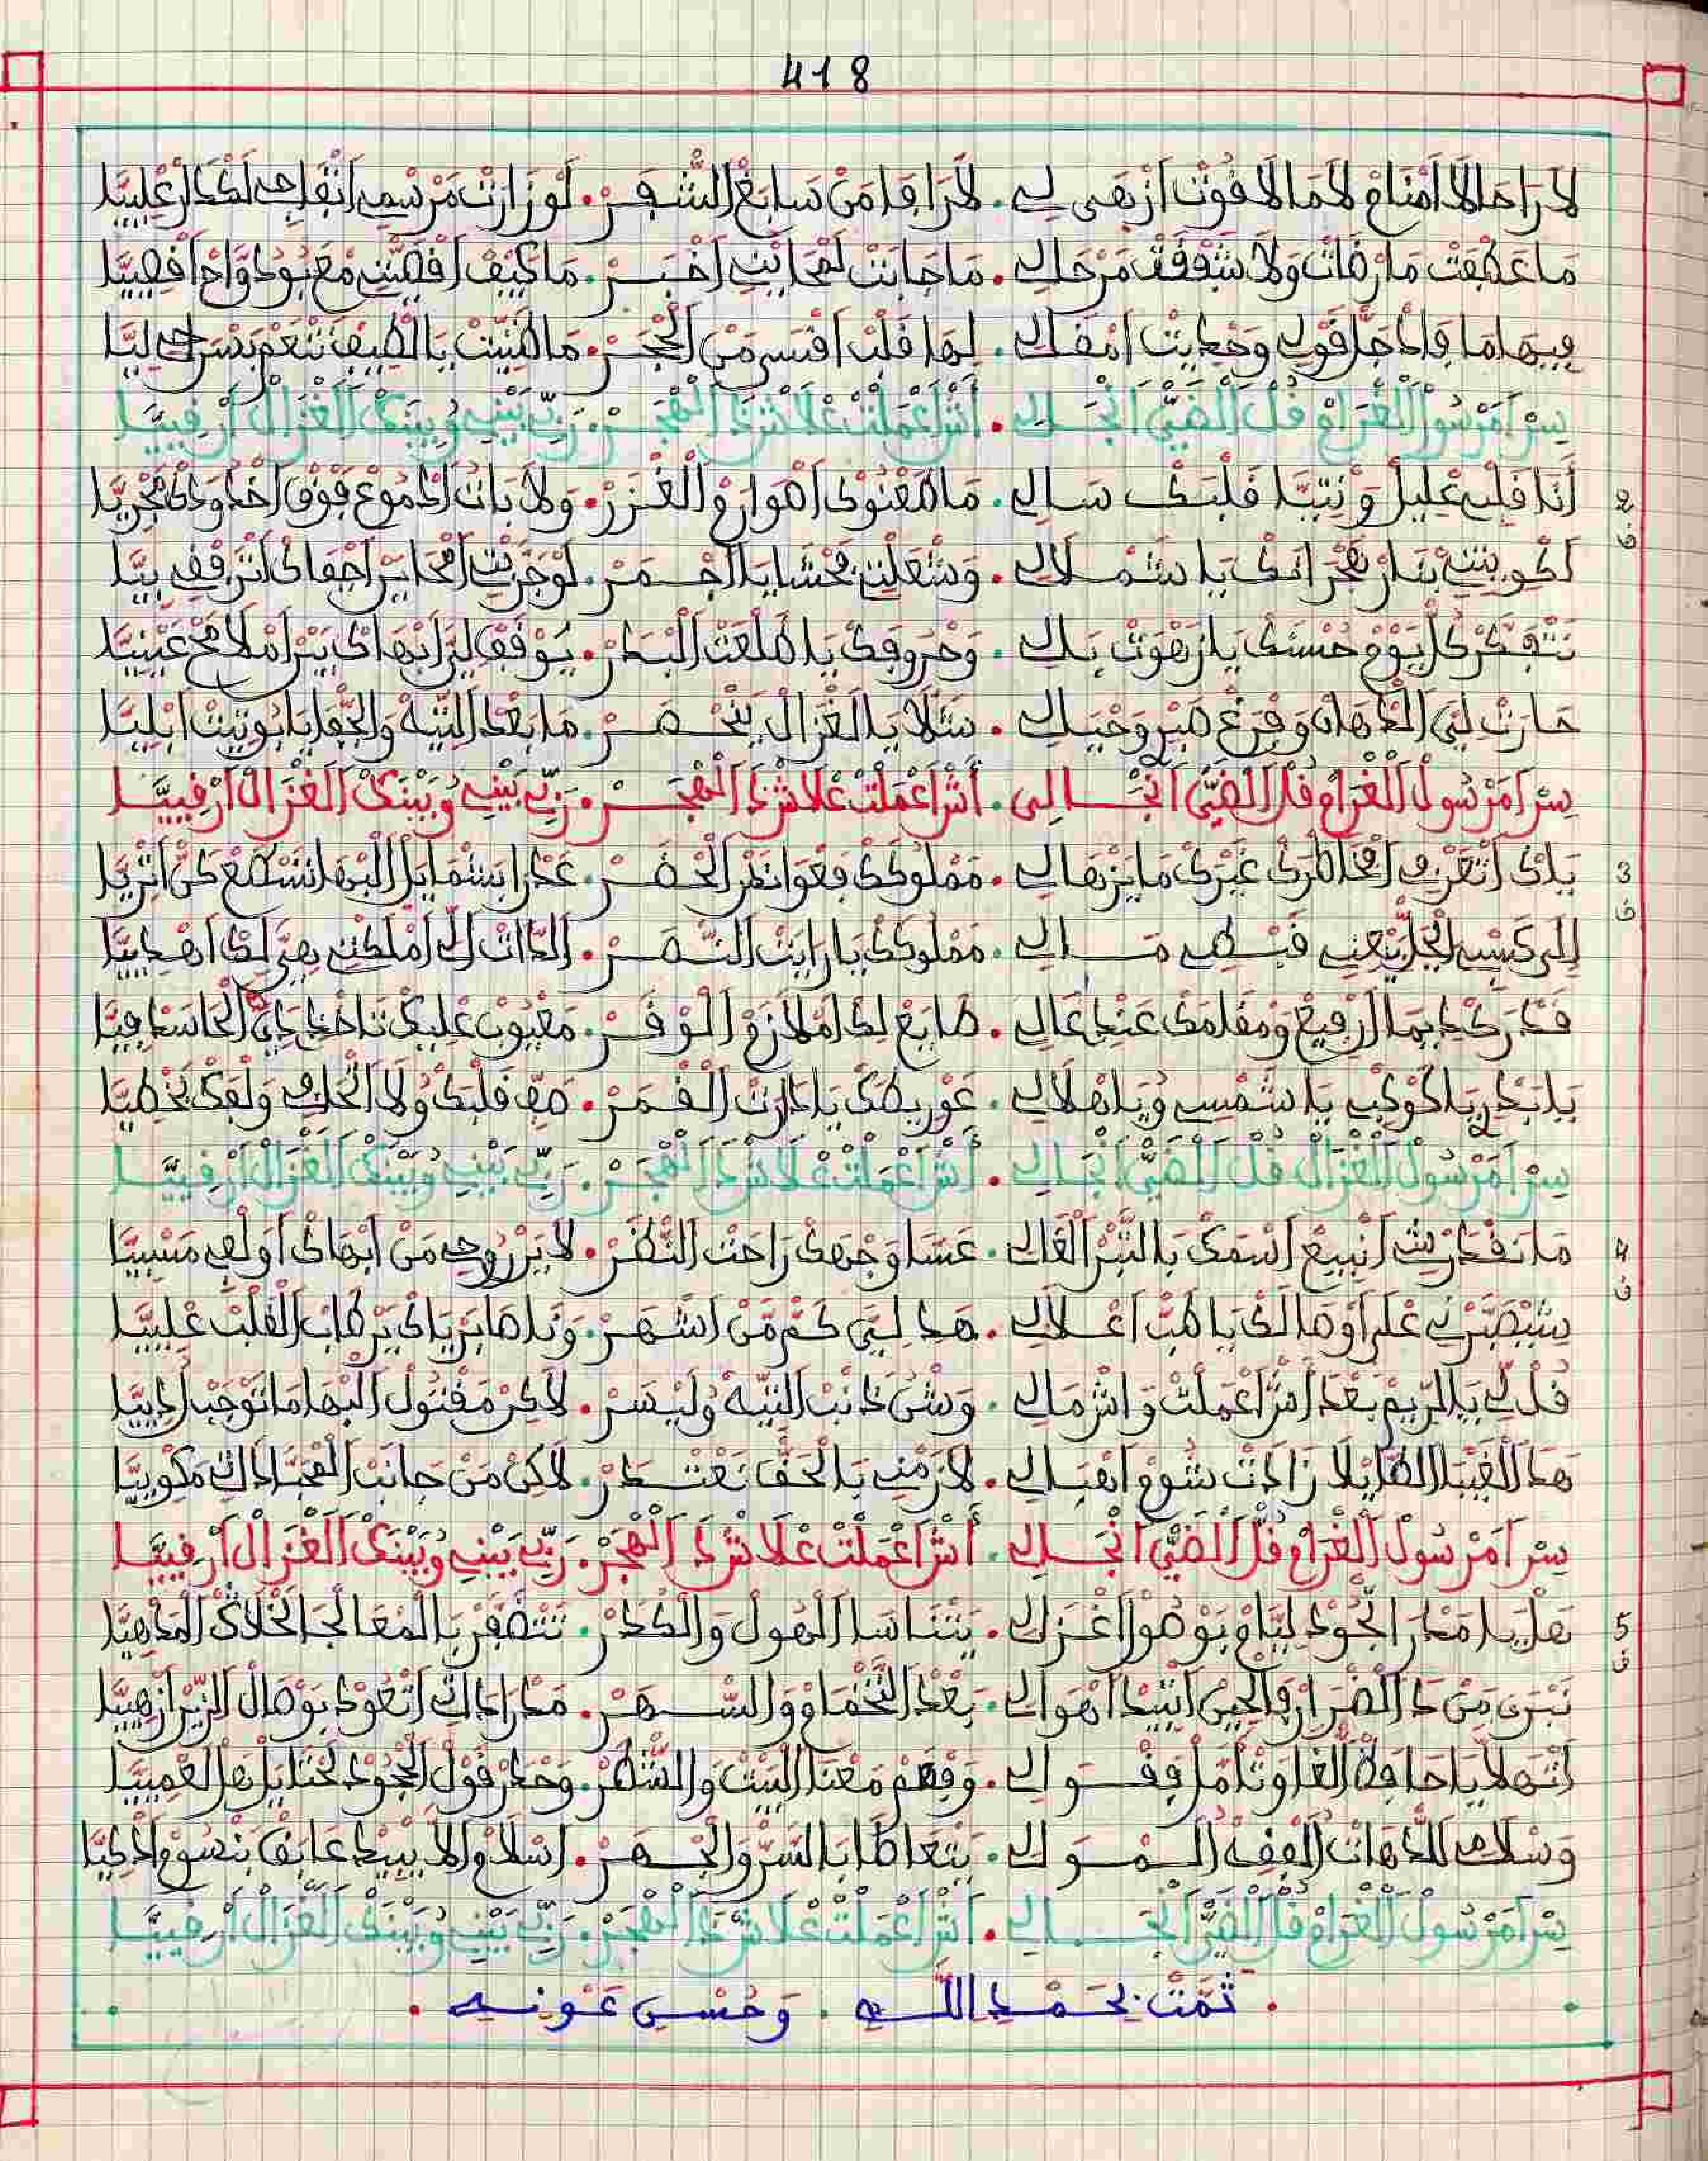 418
لا راحا لا امنام لا ما لا قوت ازهى لي . لا رافا من سابغ الشفر . لو زارت مرسمي انفاجي لكدار عليا
ما عطفت ما رضات ولا شوفت مرحالي . ما جابت لمحاينتي اخبر . ما كيف افصيتي مع بود واح افصيا
فيها ما فاد جل قولي وحكايت امقالي . لها قلب اقسى من الحجر . ما ضنيت بالطيف تنعم بسراحي ليا
سر امرسول الغرام قل الضي انجالي . أش اعملت علاش ذا الهجر . ربي بيني وبينك الغزال ارقيبا
2 أنا قلبي عليل ونتيا قلبك سالي . ما ضعنوك اهوارم الغزر . ولا بات ادموع فوق اخدودك مجريا
ف
اكويتني بنار هجرانك يا شملالي . وشعلت محشايا اجمر . لو جربت امحاير اجفاك اترقف بيا
نتفكر كل يوم حسنك يا زهوت بالي . وحروفك يا طلعت البدر . يوقف لي ابهاك بين املامح عينيا
حارت لي الدهات وفرغ صبر وحيالي . شلا يا الغزال ينحصر . ما بعد التيه والجفا يا بوتيت ابليا
سر امرسول الغرام قل الضي انجالي . أش اعملت علاش ذا الهجر . ربي بيني وبينك الغزال ارقيبا
3 يلاك اتعرف امخاطرك غيرك ما يزهالي . مملوكك فعوانط الحضر . عدرا بشمايل البها تسطع كن اتريا
ف
اللي كسبي الجل يتعني قبطي مالي . مملوكك يا رايت النصر . الدات الي املكتي هي لك اهديا
قدرك ديما ارفيع ومقامك عندي عالي . طابع لك املازم الوقر . معيوب عليك تاخد راي الحاسد فيا
يا بدري يا كوكبي يا شمسي ويا هلالي . عوريضك يا دارت القمر . صف قلبك ولا اتخالف ولفك يخطيا
سر امرسول الغزال قل الضي انجالي . أش اعملت علاش ذا الهجر . ربي بيني وبينك الغزال ارقيبا
4 ما نقدرش انبيع اسمك بالتبر الغالي . عسا وجهك راحت النظر . لا يز روحي من ابهاك أولهي مسبيا
ف
شيصبرني على اوصالك يا طب اعلالي . هدا لي كم من اشهر . ونا صابر ياك يرطاب القلب عليا
قل لي يا الريم بعد اش اعملت واش مالي . وشن ذانب التيه وليسر . لاكن مقتول البها ما توجب لديا
هد الغيبا الطايلا زادت شوم اهبالي . لازمني بالحق نعتدر . لاكن من جانب العجبا داك مكويا
سر امرسول الغرام قل الضي انجالي . أش اعملت علاش ذا الهجر . ربي بيني وبينك الغزال ارقيبا
5 هل يا مدار الجود ليام بوصول اغزالي . يتناسا الهول والكدر . تتضفر بالمعالجا الخلاك المدهيا
ف
نبرى من ذ الضرار والحين انتيد اهوالي . بعد التخمام والسهر . مدارداك اتعود بوصال الزين ازهيا
أنتهلا يا حافظ الغا وتامل فقوالي . وفهم معنا البيت والشطر . وحدر قول الجحود لحتايل هل العميا
وسلامي للدهات الفقه الموالي . يتعاطا بالسر والجهر . اسلام لا يبيد عابق بنسوم ادكيا
سر امرسول الغرام قل الضي انجالي . أش اعملت علاش ذا الهجر . ربي بيني وبينك الغزال ارقيبا
. تمت بحمد الله . وحسن عونه .